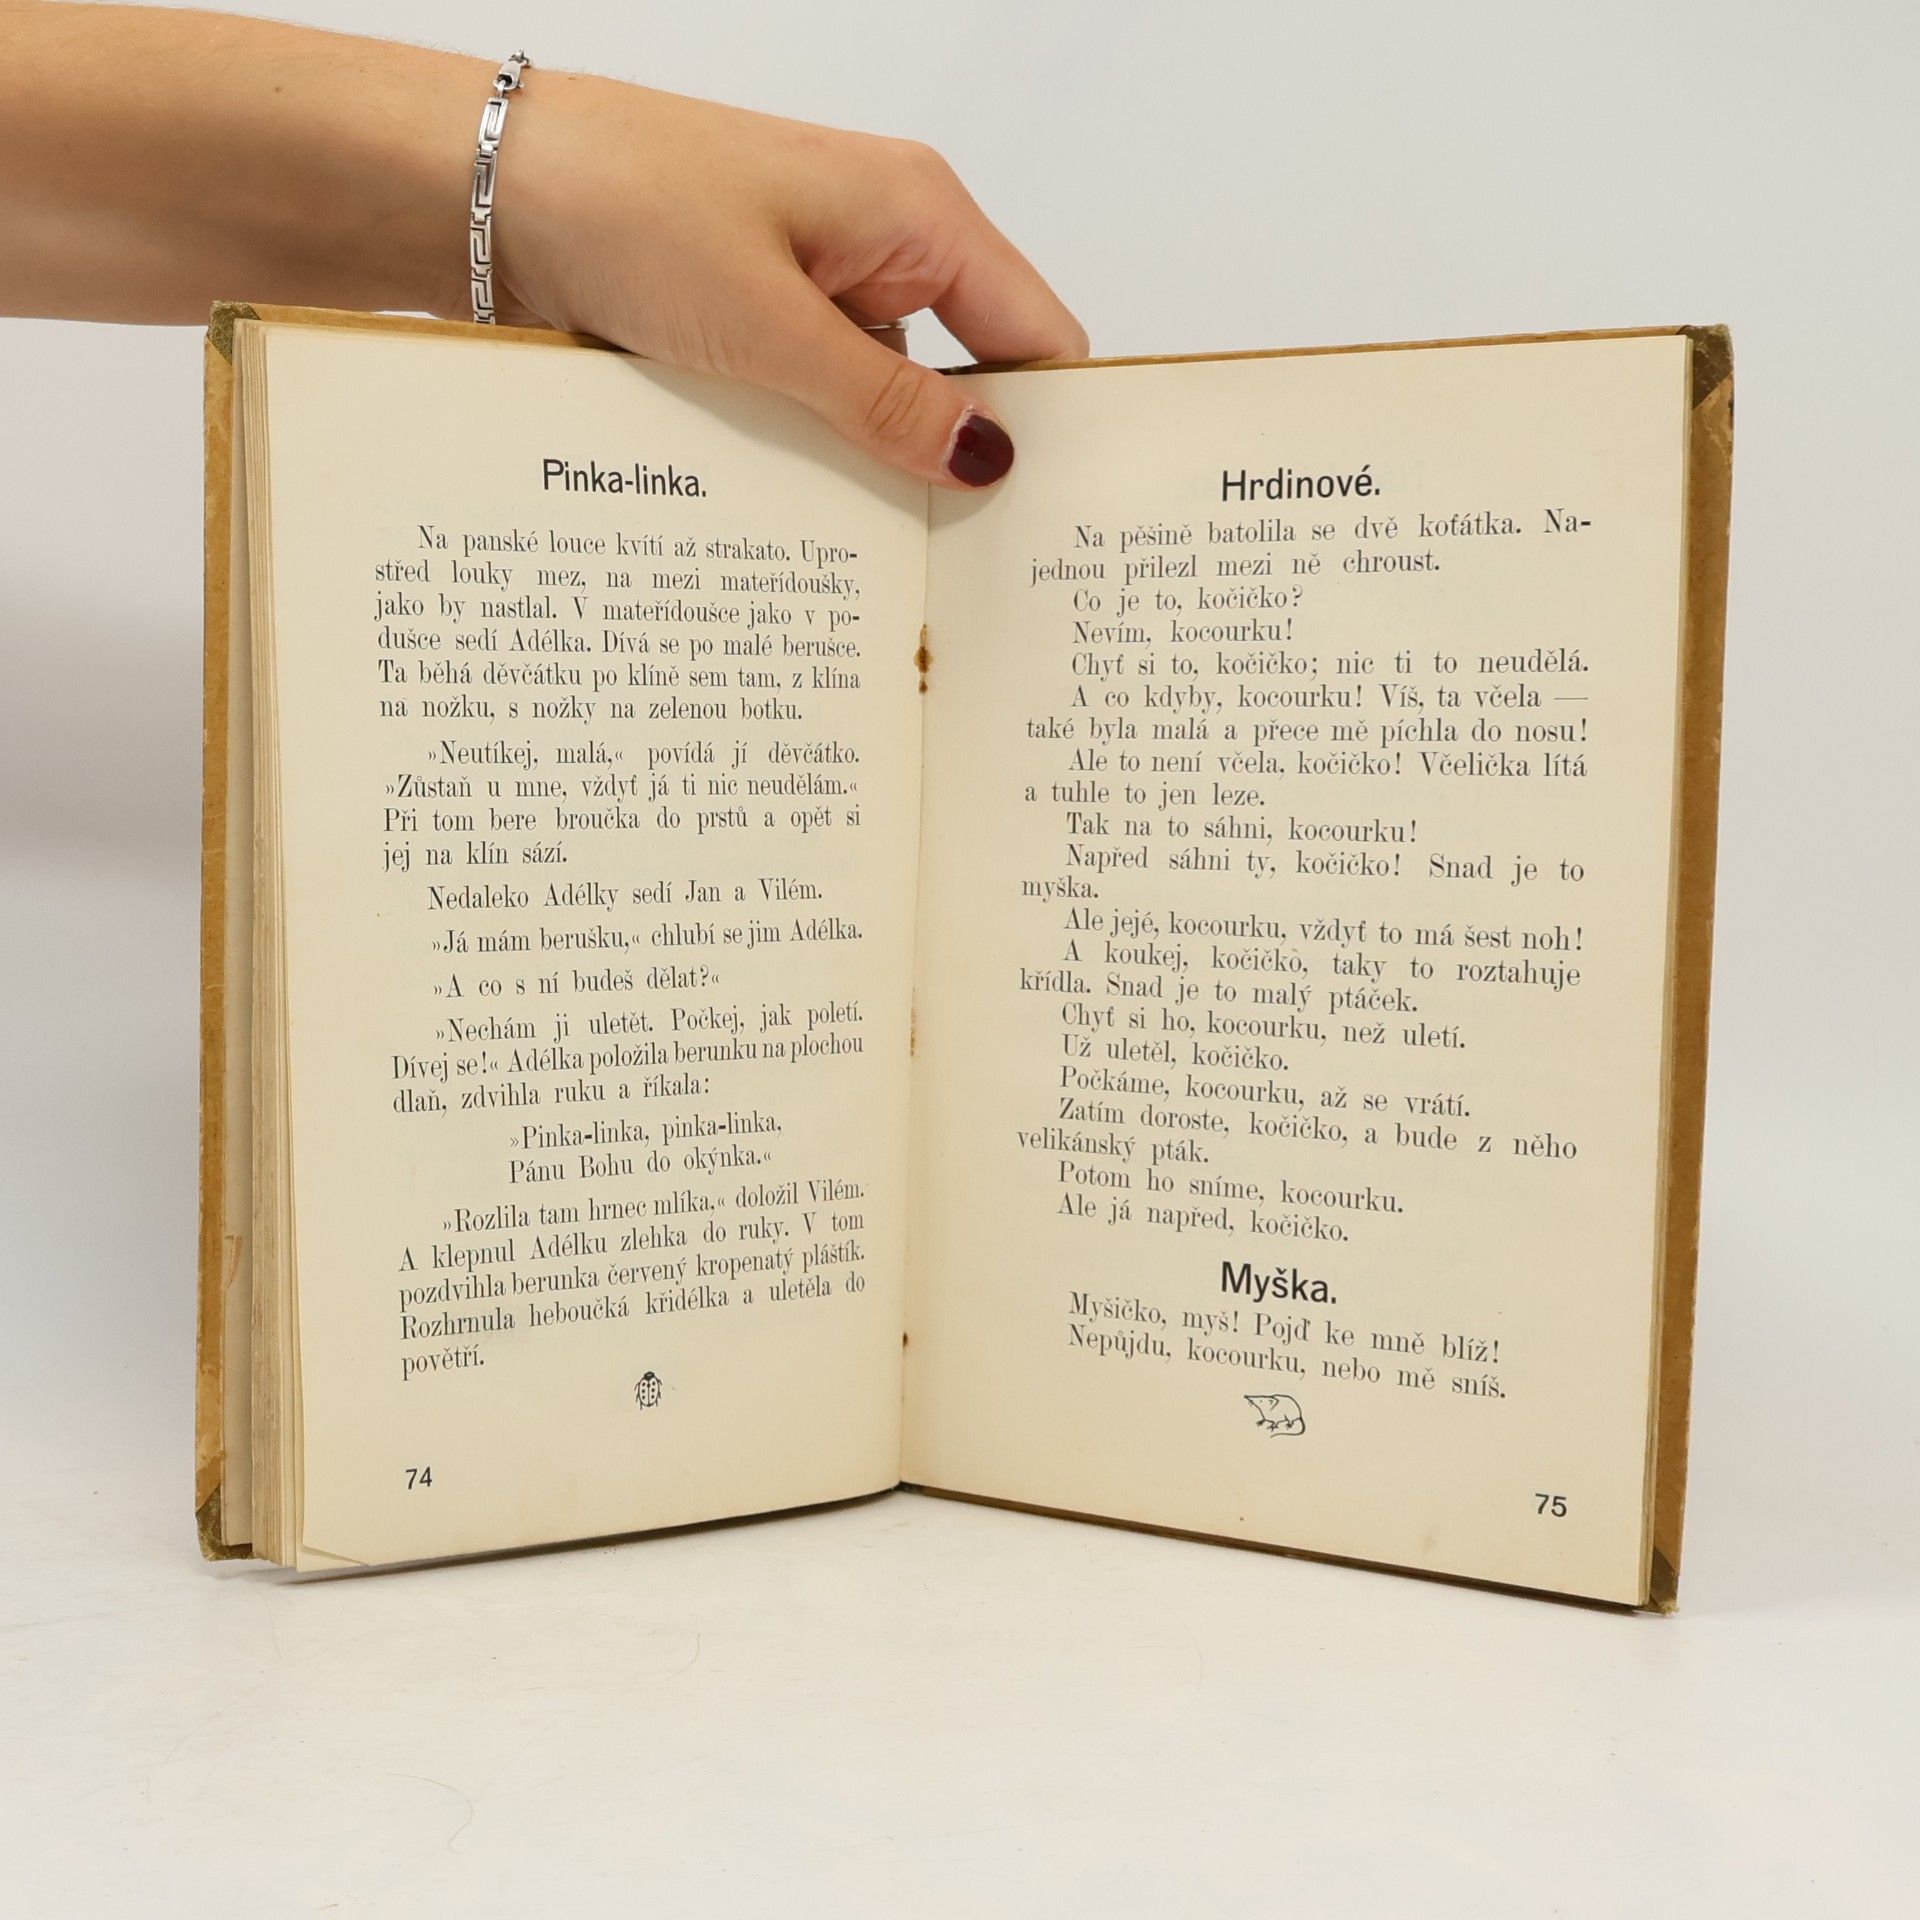 Pinka-linka.
Na panské louce kvítí až strakato. Upro-
střed louky mez, na mezi mateřídoušky,
jako by nastlal. V mateřídoušce jako v po-
dušce sedí Adélka. Dívá se po malé berušce.
Ta běhá děvčátku po klíně sem tam, z klína
na nožku, s nožky na zelenou botku.
»Neutíkej, malá,« povídá jí děvčátko.
»Zůstaň u mne, vždyť já ti nic neudělám.«
Při tom bere broučka do prstů a opět si
jej na klín sází.
Nedaleko Adélky sedí Jan a Vilém.
»Já mám berušku,« chlubí se jim Adélka.
»A co s ní budeš dělat?«
»Nechám ji uletět. Počkej, jak poletí.
Dívej se!« Adélka položila berunku na plochou
dlaň, zdvihla ruku a říkala:
»Pinka-linka, pinka-linka,
Pánu Bohu do okýnka.«
»Rozlila tam hrnec mlíka,« doložil Vilém.
A klepnul Adélku zlehka do ruky. V tom
pozdvihla berunka červený kropenatý pláštík.
Rozhrnula heboučká křidélka a uletěla do
povětří.
74
Hrdinové.
Na pěšině batolila se dvě koťátka. Na-
jednou přilezl mezi ně chroust.
Co je to, kočičko?
Nevím, kocourku!
Chyť si to, kočičko; nic ti to neudělá.
A co kdyby, kocourku! Víš, ta včela —
také byla malá a přece mě píchla do nosu!
Ale to není včela, kočičko! Včelička lítá
a tuhle to jen leze.
Tak na to sáhni, kocourku!
Napřed sáhni ty, kočičko! Snad je to
myška.
Ale jejé, kocourku, vždyť to má šest noh!
A koukej, kočičko, taky to roztahuje
křídla. Snad je to malý ptáček.
Chyť si ho, kocourku, než uletí.
Už uletěl, kočičko.
Počkáme, kocourku, až se vrátí.
Zatím doroste, kočičko, a bude z něho
velikánský pták.
Potom ho sníme, kocourku.
Ale já napřed, kočičko.
Myška.
Myšičko, myš! Pojď ke mně blíž!
Nepůjdu, kocourku, nebo mě sníš.
75